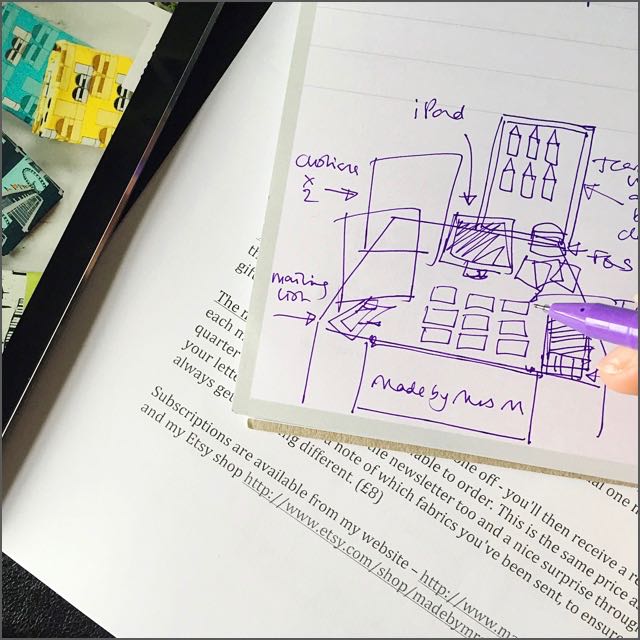 iPad
cushions
x
2
mailing
list
made by Mrs M
gif
The m
each m
quarter
your lette
always ge
one off - you'll then receive a re
able to order. This is the same price a
the newsletter too and a nice surprise through
a note of which fabrics you've been sent, to ensure
ing different. (£8)
Subscriptions are available from my website – http://www.m
and my Etsy shop http://www.etsy.com/shop/madebymr